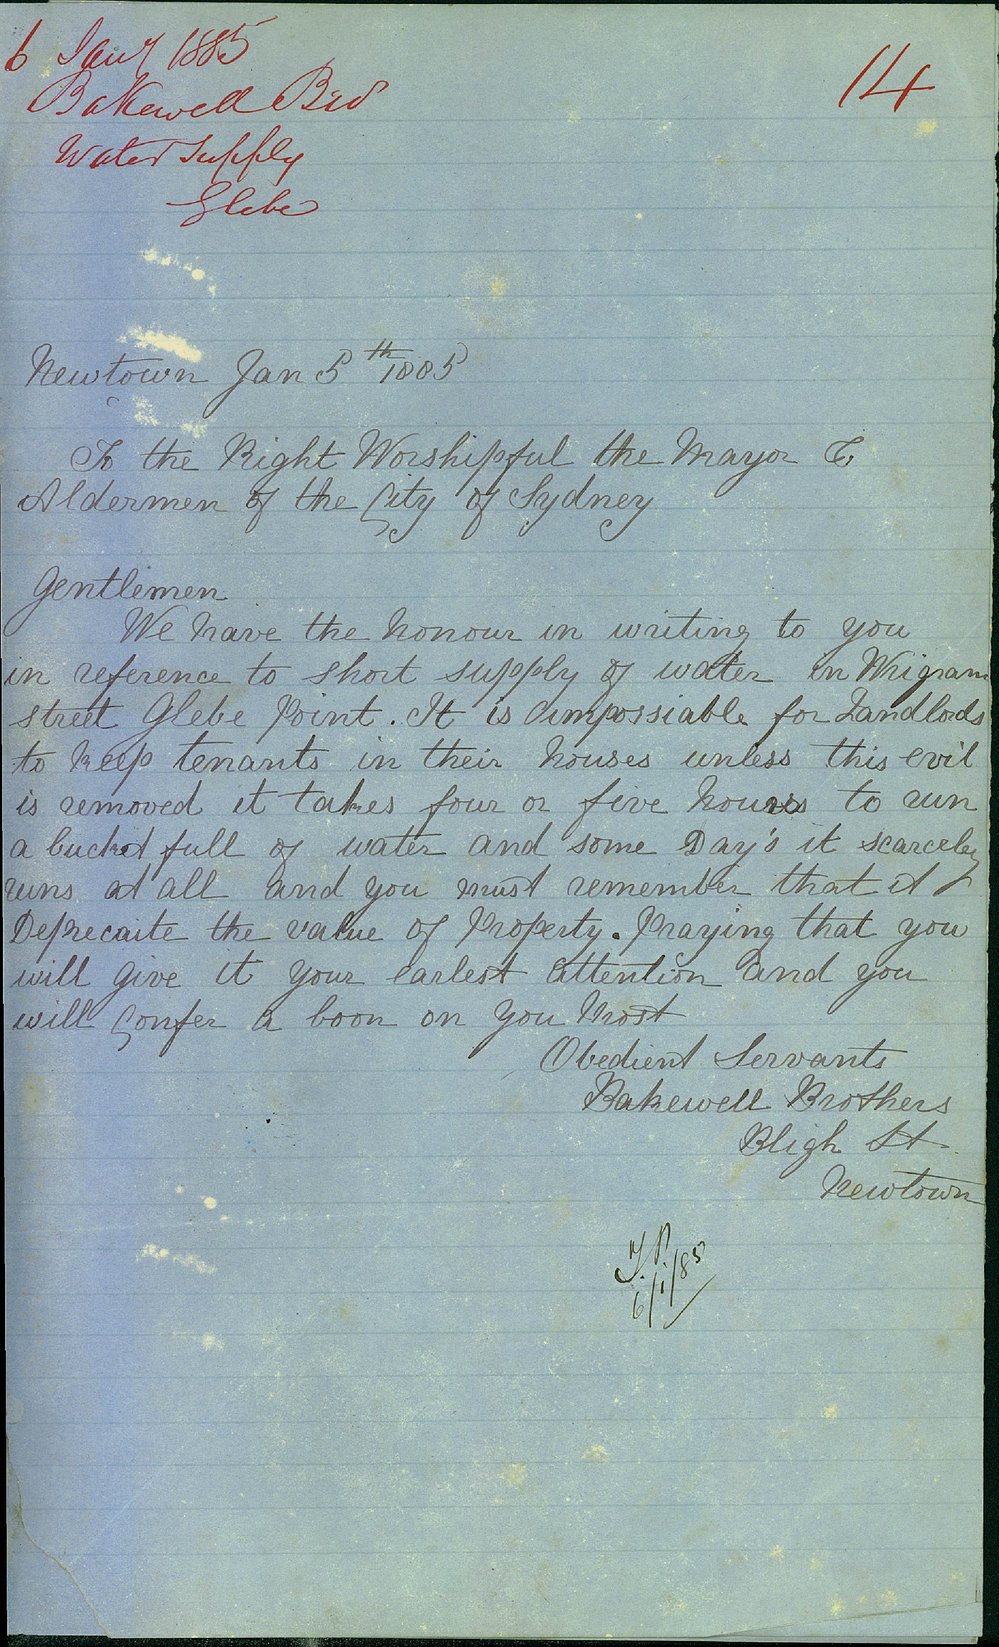 6 Jany 1885
14
Bakewell Bro
Water Supply
Glebe
Newtown Jan 5th 1885
To the Right Worshipful the Mayor &
Aldermen of the City of Sydney
Gentlemen
We have the honour in writing to you
in reference to short supply of water in Wrigram
street Glebe Point. It is impossiable for Landlords
to keep tenants in their houses unless this evil
is removed it takes four or five hours to run
a bucket full of water and some Day's it scarceley
runs at all and you must remember that it
Deprecaite the value of Property. Praying that you
will give it your earlest attention and you
will Confer a boon on you Most
Obedient Servants
Bakewell Brothers
Bligh St
Newtown
6/1/85